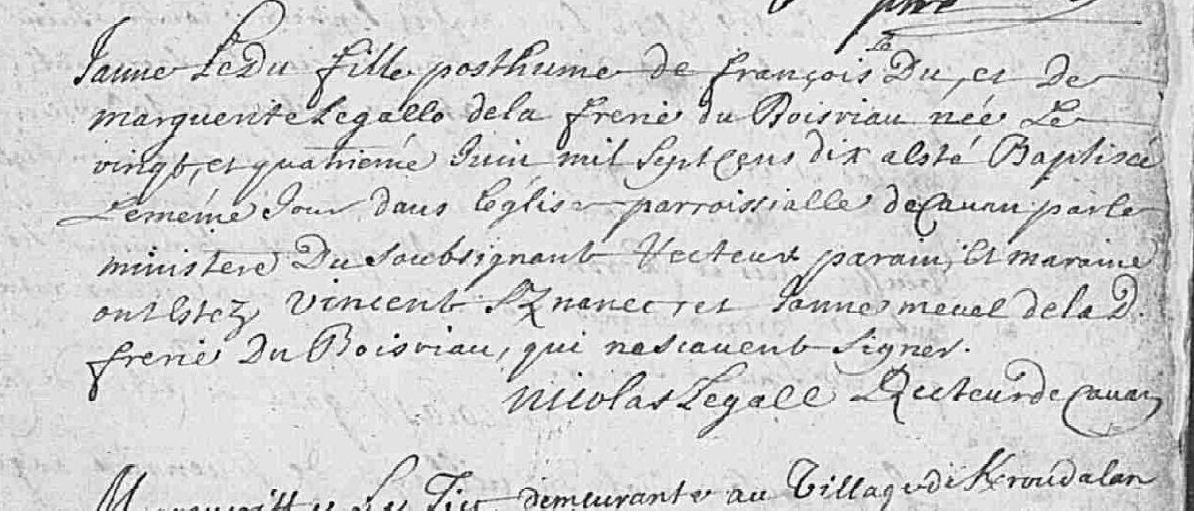 Janne Le Du fille posthume de françois Le Du, et de
marguerite Legallo dela frerie du Boisriau née Le
vingt, et quatriéme Juin mil Sept çens dix a esté Baptiseé
Leméme Jour dans l'église parroissialle de Cavan par le
ministere Du soubsignant Recteur parain, Et maraine
ont Estez Vincent et Janne mevel de la D.
frerie Du Boisriau, qui ne scavent signer.
Nicolas Legall Recteur de Cavan
Le demeurante au Village de Kroudalan